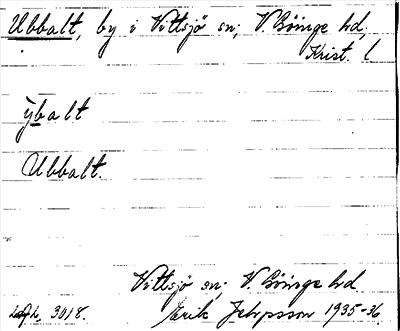 Ubbalt, by i Vittsjö sn; V. Göinge hd,
Krist. l
ỳbalt
Ubbalt.
Vittsjö sn; V. Göinge hd
3018. Erik Jeppsson 1935-36.